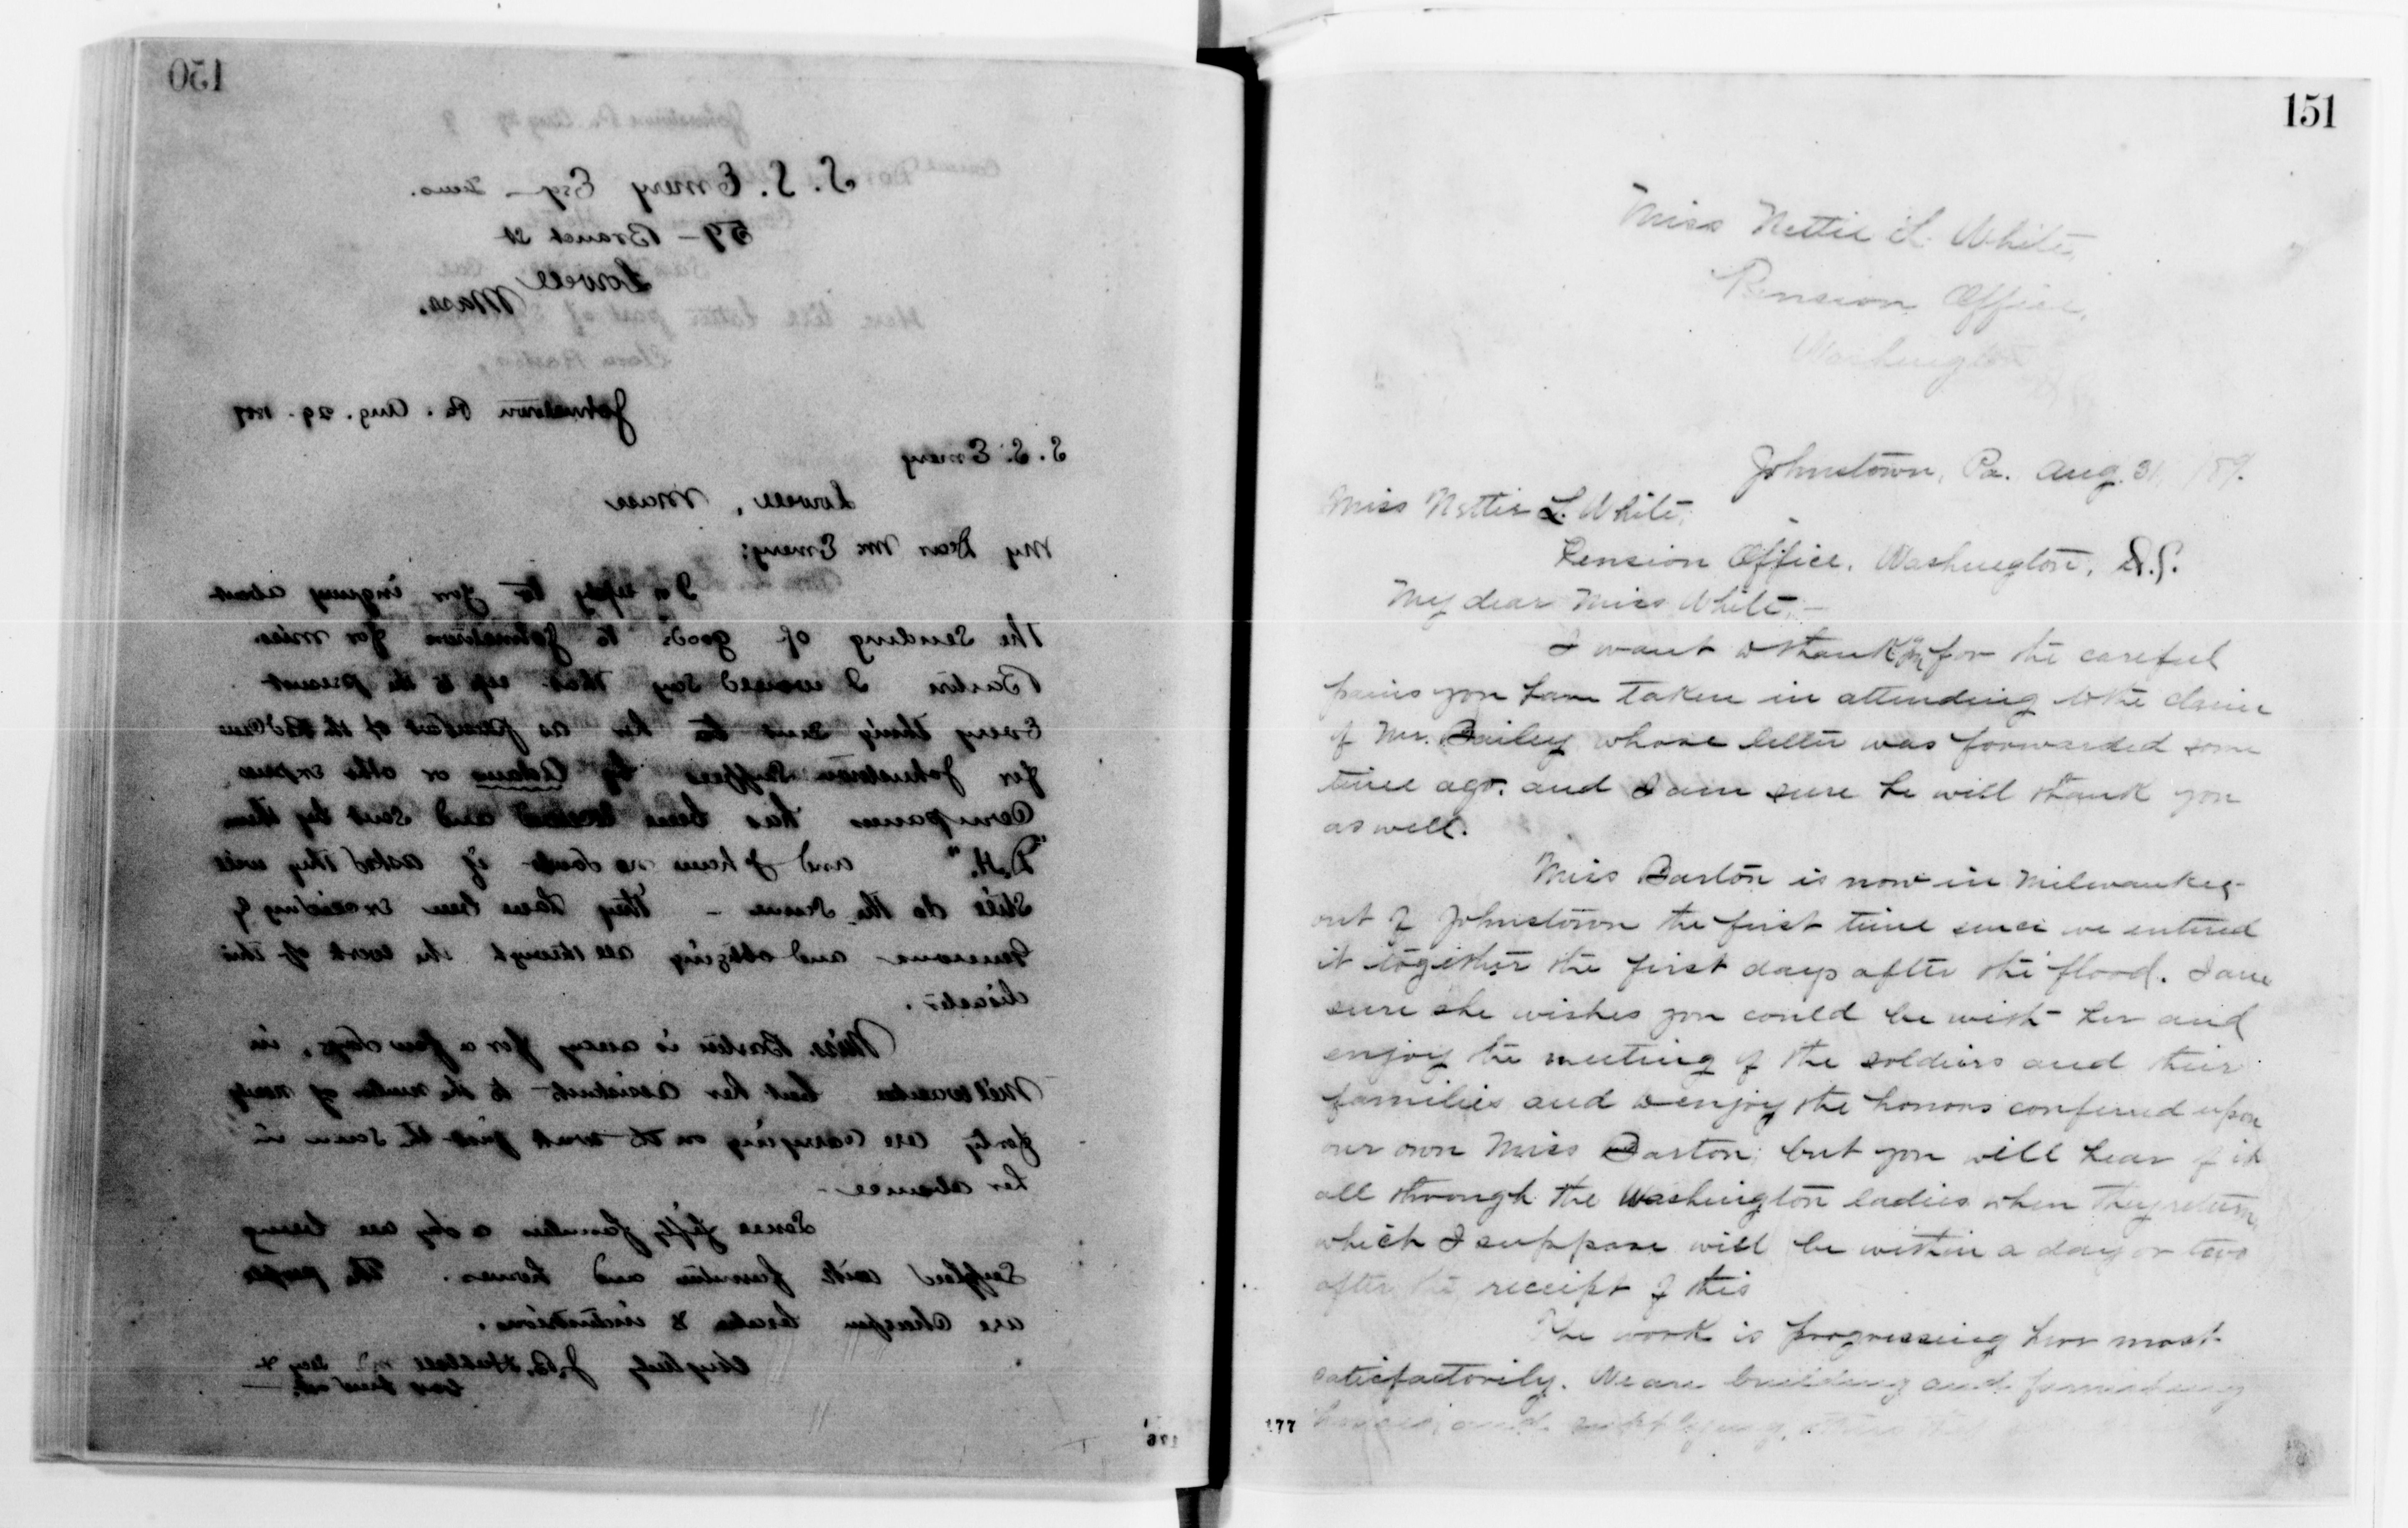 150
S. S. Emery Esq
59 - Branch St
Lowell
Mass.
Johnstown Pa. Aug. 29. 1889
S. S. Emery
Lowell, Mass
My Dear Mr Emery;
In reply to your inquiry about
the sending of goods to Johnstown for Miss
Barton I would say that up to the present
Every thing sent to her as president of the Red Cross
for Johnstown Suffers by Adams or other express
Companies has been and sent by them
"D.H." and I have no doubt if asked they will
Still do the same - They have been exceedingly
Generous and obliging all through the work of this
disaster.
Miss. Barton is away for a few days, in
Milwaukee but her assistants to the number of nearly
forty are carrying on the work just the same in
her absence -
Some fifty families a day are being
Supplied with furniture and homes. The people
are
J. B. Hubbell
151
Miss Nettie L. White,
Pension Office,
Washington
Johnstown, Pa. Aug. 31, 189.
Miss Nettie L. White,
Pension Office, Washington, D.C.
My dear Miss White, -
I want to thank you for the careful
pains you have taken in attending to the claim
of Mr. Bailey whose letter was forwarded some
time ago. and I am sure he will thank you
as well.
Miss Barton is now in Milwaukee -
out of Johnstown the first time since we entered
it together the first days after the flood. I am
sure she wishes you could be with her and
enjoy the meeting of the soldiers and their
families and to enjoy the honors conferred upon
our own Miss Barton; but you will hear of it
all through the Washington ladies when they return,
which I suppose will be within a day or two
after the receipt of this
The work is progressing here most
satisfactorily. We are building and furnishing
houses, and supplying
176
177